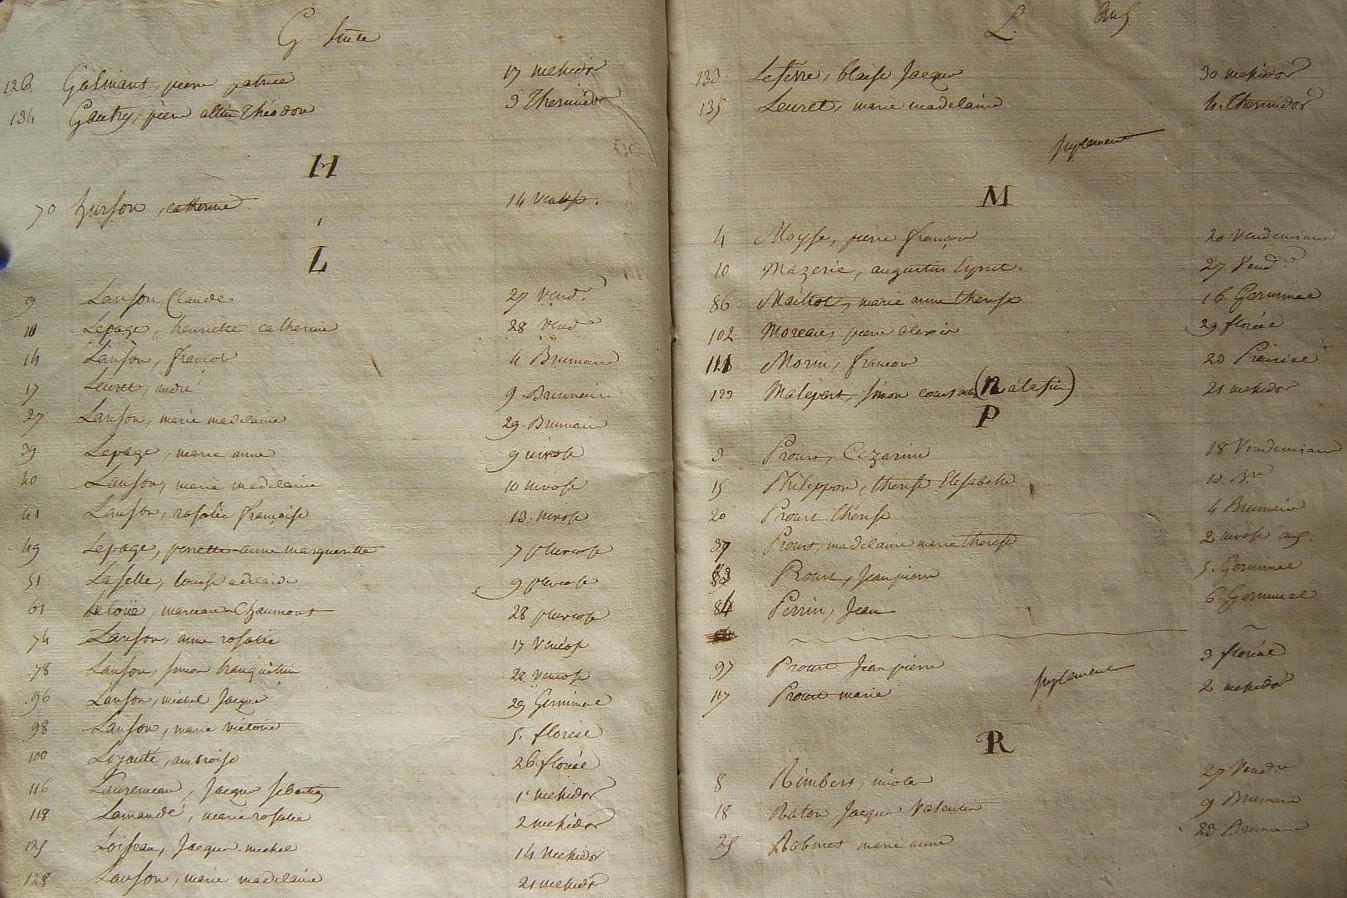 G suite
126 Galinant, pierre patrice 17 messidor
134 Gautry, pierre Théodore 9 Thermidor
H
70 hurson, catherine 14 Ventose.
L
9 Lanson, Claude 27 Vend.re
11 Lepage, henriette catherine 28 Vend
14 Lanson, francois 4 Brumaire
17 Leuret, andré 9 Brumaire
27 Lanson, marie madelaine 29 Brumaire
39 Lepage, marie anne 9 nivose
40 Lanson, marie madelaine 10 nivose
41 Lanson, rosalie françoise 13 nivose
49 Lepage, perette anne marguerite 7 pluviose
51 Laselle, louise adelaide 9 pluviose
61 marceau Chaumont 28 pluviose
74 Lanson, anne rosalie 17 Ventose
78 Lanson, simon 22 ventose
96 Lanson, michel Jacque 29 Germinal
98 Lanson, marie victoire 5 floréal
100 ambroise 26 floréal
116 Jacque Sebastien 1er messidor
118 Lamandé, marie rosalie 2 messidor
125 Loiseau, Jacque michel 14 messidor
128 Lanson, marie madelaine 21 messidor
L.
133 Lefevre, blaise Jacque 30 messidor
135 Leuret, marie madelaine 4 Thermidor
suplement
M
4 Moyse, pierre francois 20 Vendemiaire
10 Mazerie, augustin 27 Vend.re
86 Maillot, marie anne therese 16 Germinal
102 Moreau, pierre alexis 29 floréal
111 Morin, francois 20 Prairial
129 Malépart, simon (n a la fin) 21 messidor
P
3 Prout, Cezarine 18 Vendemiaire
15 Philippon, therese Elisabeth Br.re
20 Prout therese 4 Brumaire
37 Prout, madelaine marie therese 2 nivose
83 Prout, Jean pierre 5 Germinal
84 Perrin, Jean 6 Germinal
97 Prout Jean pierre 9 floréal
117 Prout marie suplement 2 messidor
R
8 Rimbert, nicolas 27 Vend.re
18 Raton Jacque Valentin 9 Brumaire
25 marie anne 23 Brumaire